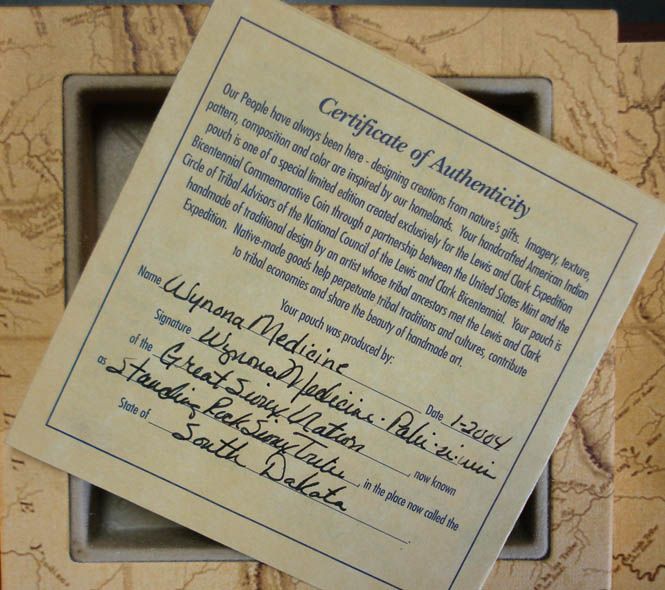 Certificate of Authenticity
Our People have always been here - designing creations from nature's gifts. Imagery, texture,
pattern, composition and color are inspired by our homelands. Your handcrafted American Indian
pouch is one of a special limited edition created exclusively for the Lewis and Clark Expedition
Bicentennial Commemorative Coin through a partnership between the United States Mint and the
Circle of Tribal Advisors of the National Council of the Lewis and Clark Bicentennial. Your pouch is
handmade of traditional design by an artist whose tribal ancestors met the Lewis and Clark
Expedition. Native-made goods help perpetuate tribal traditions and cultures, contribute
to tribal economies and share the beauty of handmade art.
Your pouch was produced by:
Name Wynona Medicine Date 1-2004
Signature Wynona Medicine
of the Great Sioux Nation, now known
as Standing Rock Sioux Tribe, in the place now called the
State of South Dakota.